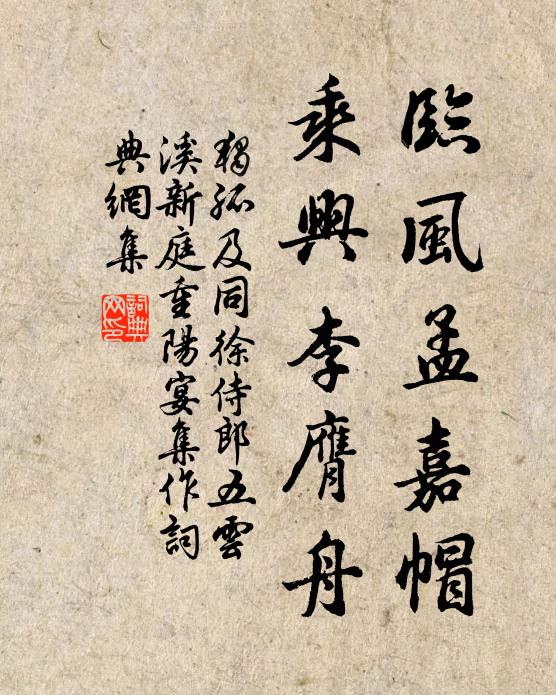 臨風孟嘉帽
乘興李膺舟
獨孤及同徐侍郎五雲
溪新庭重陽宴集作詞
典網集
詞典
网印